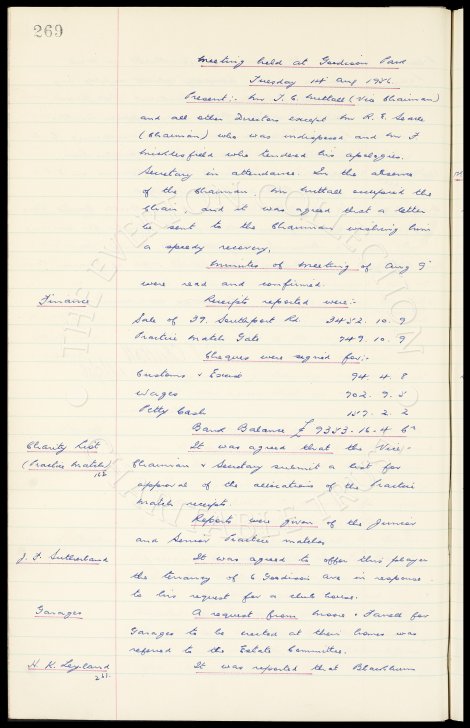 269
Meeting held at Goodison Park
Tuesday 14 Aug 1956.
Present:- Mr T. C. Nuttall (Vice Chairman)
and all other Directors except Mr R. E. Searle
(Chairman) who was indisposed and Mr F
Micklesfield who tendered his apologies.
Secretary in attendance. In the absence
of the Chairman, Mr Nuttall occupied the
Chair, and it was agreed that a letter
be sent to the Chairman wishing him
a speedy recovery.
Minutes of Meeting of Aug 9
were read and confirmed.
Finance Receipts reported were:-
Sale of 39. Southport Rd. 2452. 10. 9
Practice Match Gate 749. 10. 9
Cheques were signed for:-
Customs & Excise 94. 4. 8
Wages 702. 9. 5
Petty Cash 157. 2. 2
Bank Balance £ 9353. 16. 4
Charity List It was agreed that the Vice-
(Practice Match) Chairman & Secretary submit a list for
approval of the allocations of the Practice
Match receipts.
Reports were given of the Junior
and Senior Practice matches
J. F. Sutherland It was agreed to offer this player
the tenancy of 6 Goodison Ave in response
to his request for a club house.
Garages A request from Moore & Farrell for
Garages to be erected at their homes was
referred to the Estate Committee.
H. K. Leyland It was reported that Blackburn
THE EVERTON COLLECTION
CHARITABLE TRUST